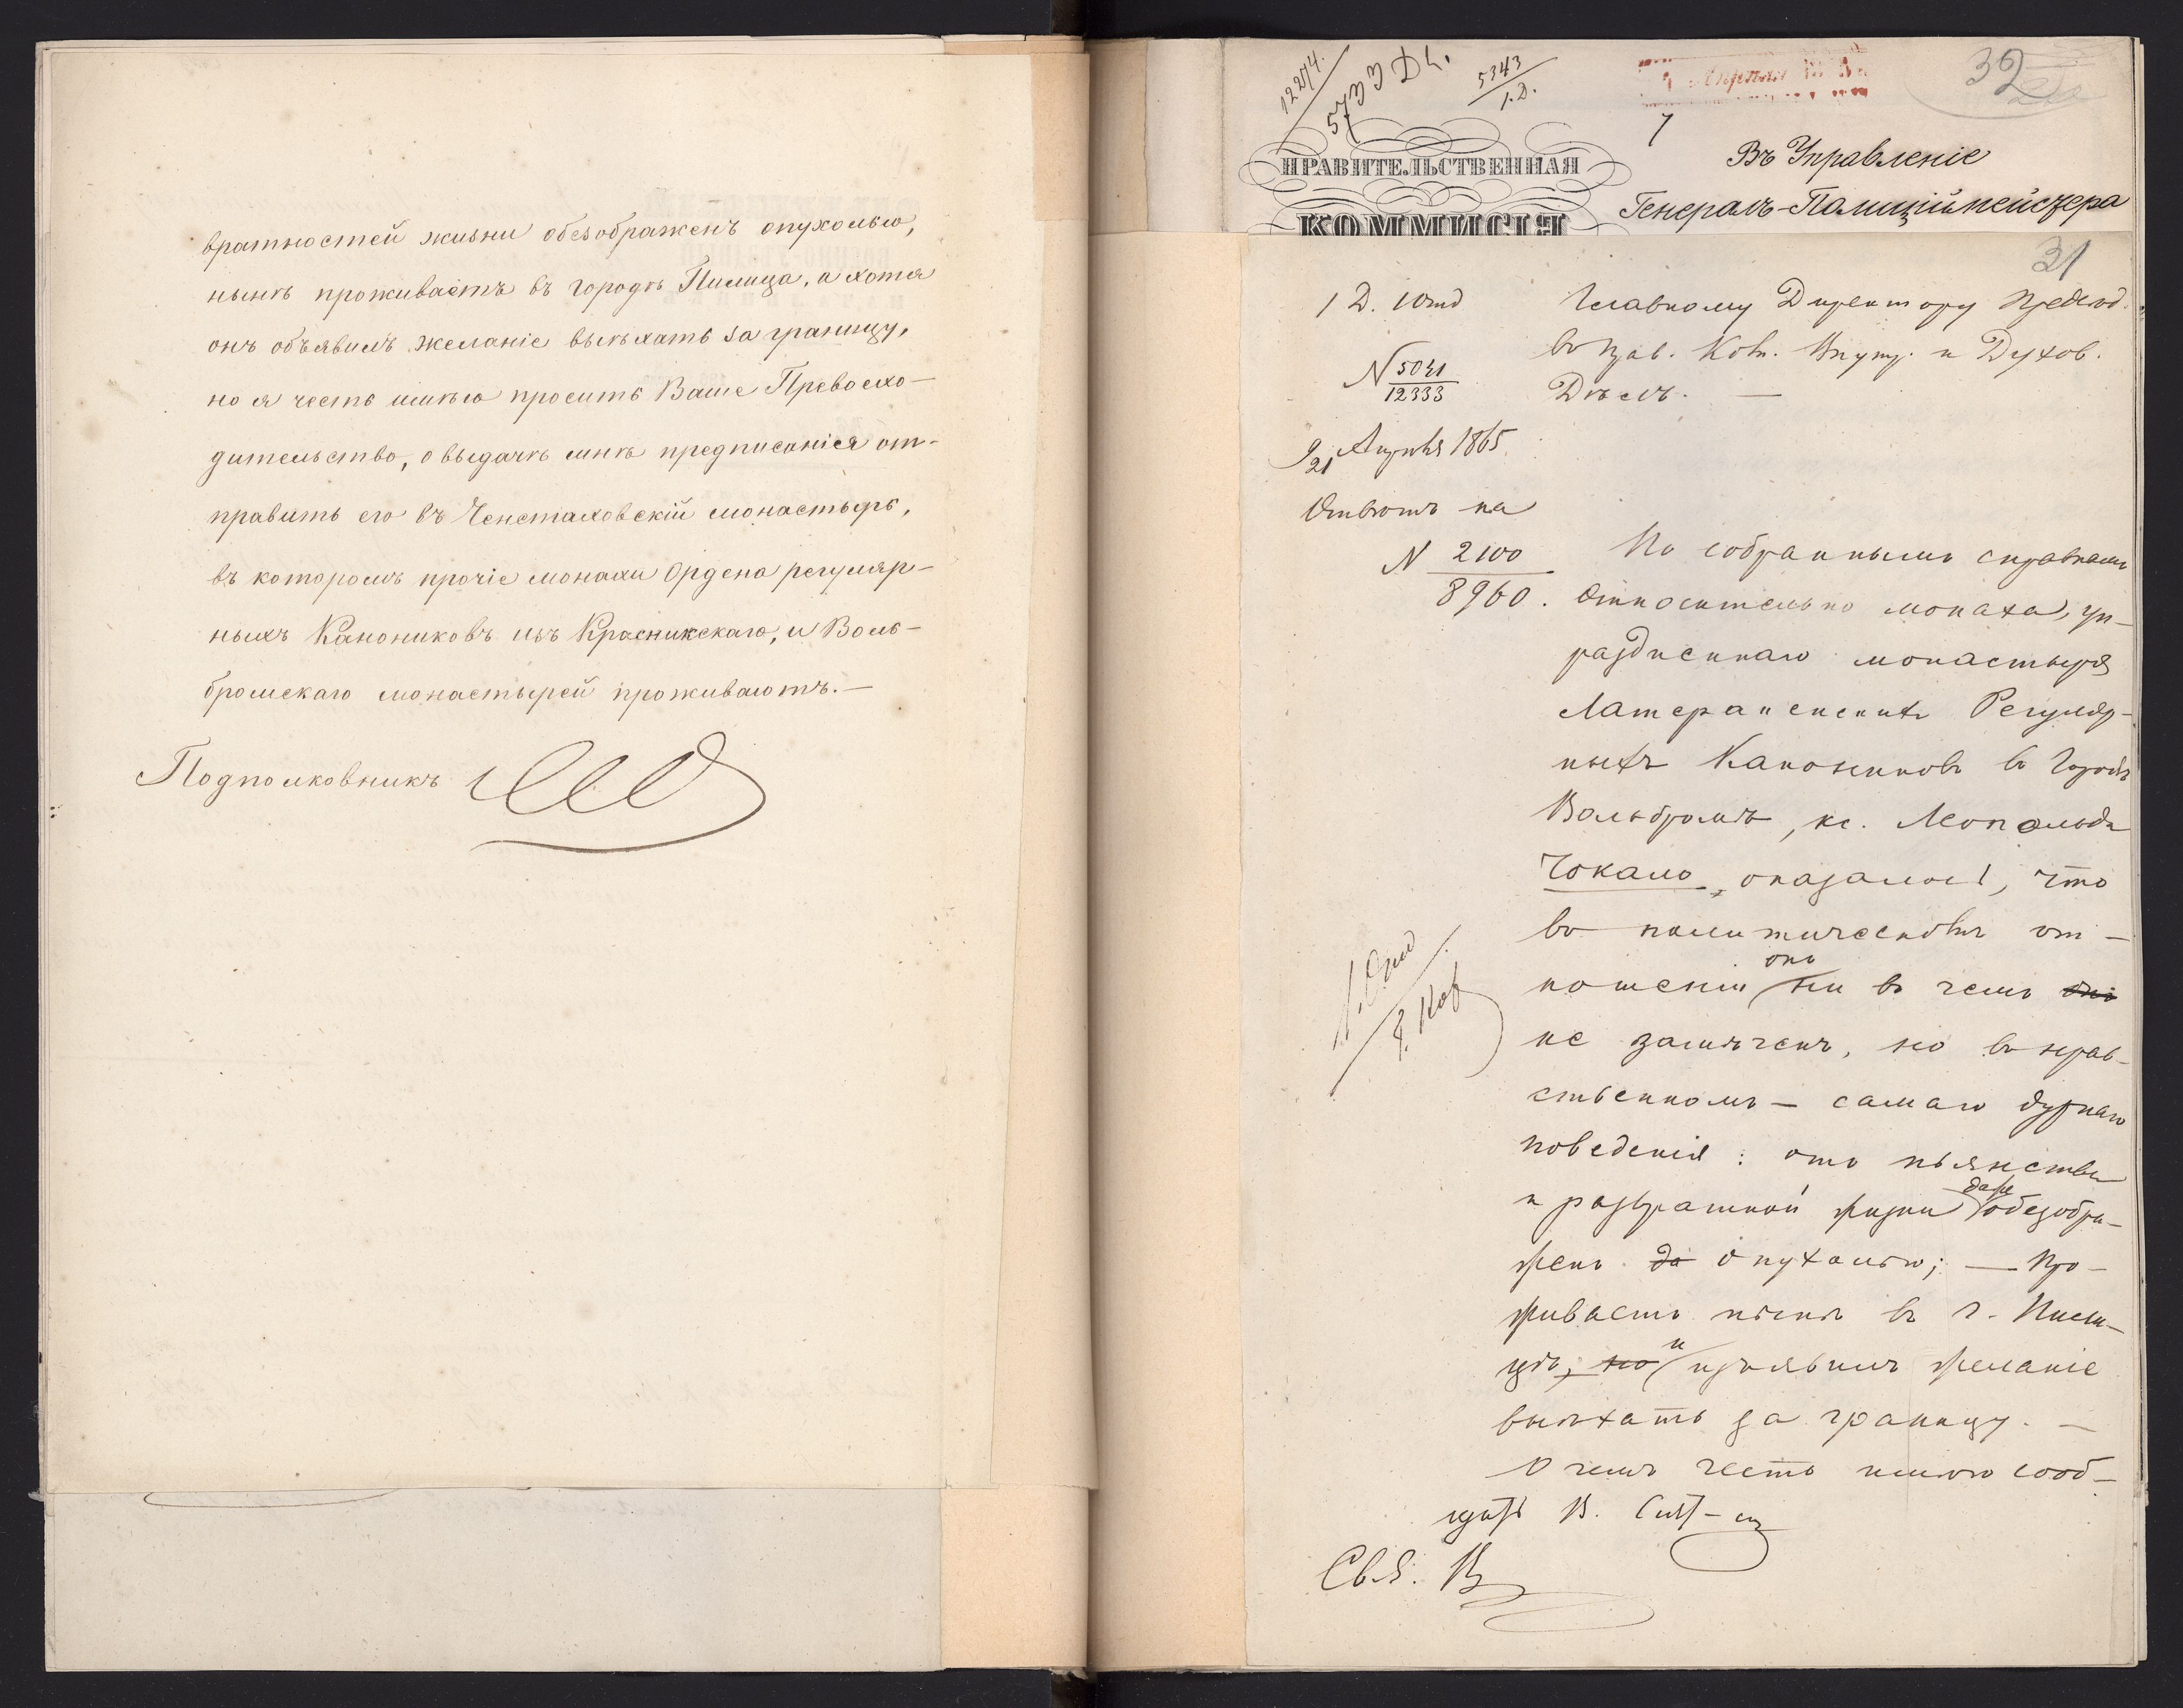 вратностей жизни обезображенъ опухолью,
нынѣ проживаетъ въ городѣ Пилица, а хотя
онъ объявилъ желаніе выѣхать за границу,
но я честь имѣю просить Ваше Превосхо-
дительство, о выдачѣ мнѣ предписанія от-
править его въ Ченстаховскій монастырь,
въ которомъ прочіе монахи Ордена регуляр-
ныхъ Канониковъ изъ Красникскаго, и Воль-
бромскаго монастырей проживаютъ.—
Подполковникъ
12274.
5733
5343
1.Д.
32
7
ПРАВИТЕЛЬСТВЕННАЯ
КОММИСІЯ
Въ Управленіе
Генералъ-Полиціймейстера
31
1 Д. 1 Отд
Главному Директору Предсѣд.
в Прав. Ком. Внутр. и Духов.
Дѣлъ. —
N 5041
12333
9/21 Апрѣля 1865.
Отвѣтъ на
N 2100
8960.
По собраннымъ справкамъ
относительно монаха, уп-
раздненнаго монастыря
Латеранскихъ Регуляр-
ныхъ Канониковъ в городѣ
Вольбромѣ, кс. Леопольда
Чокало, оказалось, что
въ политическомъ от-
ношеніи онъ ни въ чемъ онъ
не замѣченъ, но въ нрав-
ственномъ — самаго дурнаго
поведенія: отъ пьянства
и развратной жизни даже обезобра-
женъ да опухолью; — Про-
живаетъ нынѣ въ г. Пили-
цѣ, но и изъявилъ желаніе
выѣхать за границу. —
О чемъ честь имѣю сооб-
щить В. Сият-у